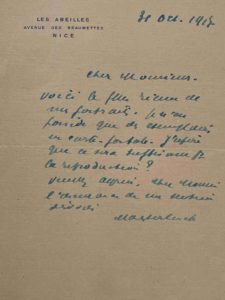 LES ABEILLES
AVENUE DES BAUMETTES
NICE
31 Oct. 191
Cher Monsieur
Voici le plus récent de
mes portraits. Je n'en
possède que des
en carte-postale. J'espère
que ce sera suffisant pr
la reproduction ?
Veuillez agréer, cher Monsieur
l'assurance de mes sentiments
dévoués
Maeterlinck